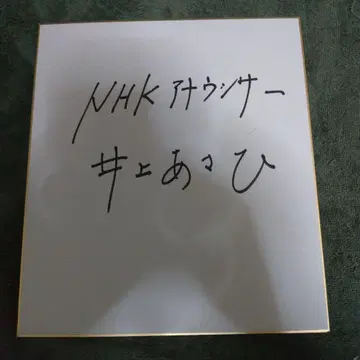 NHKアナウンサー
井上あさひ